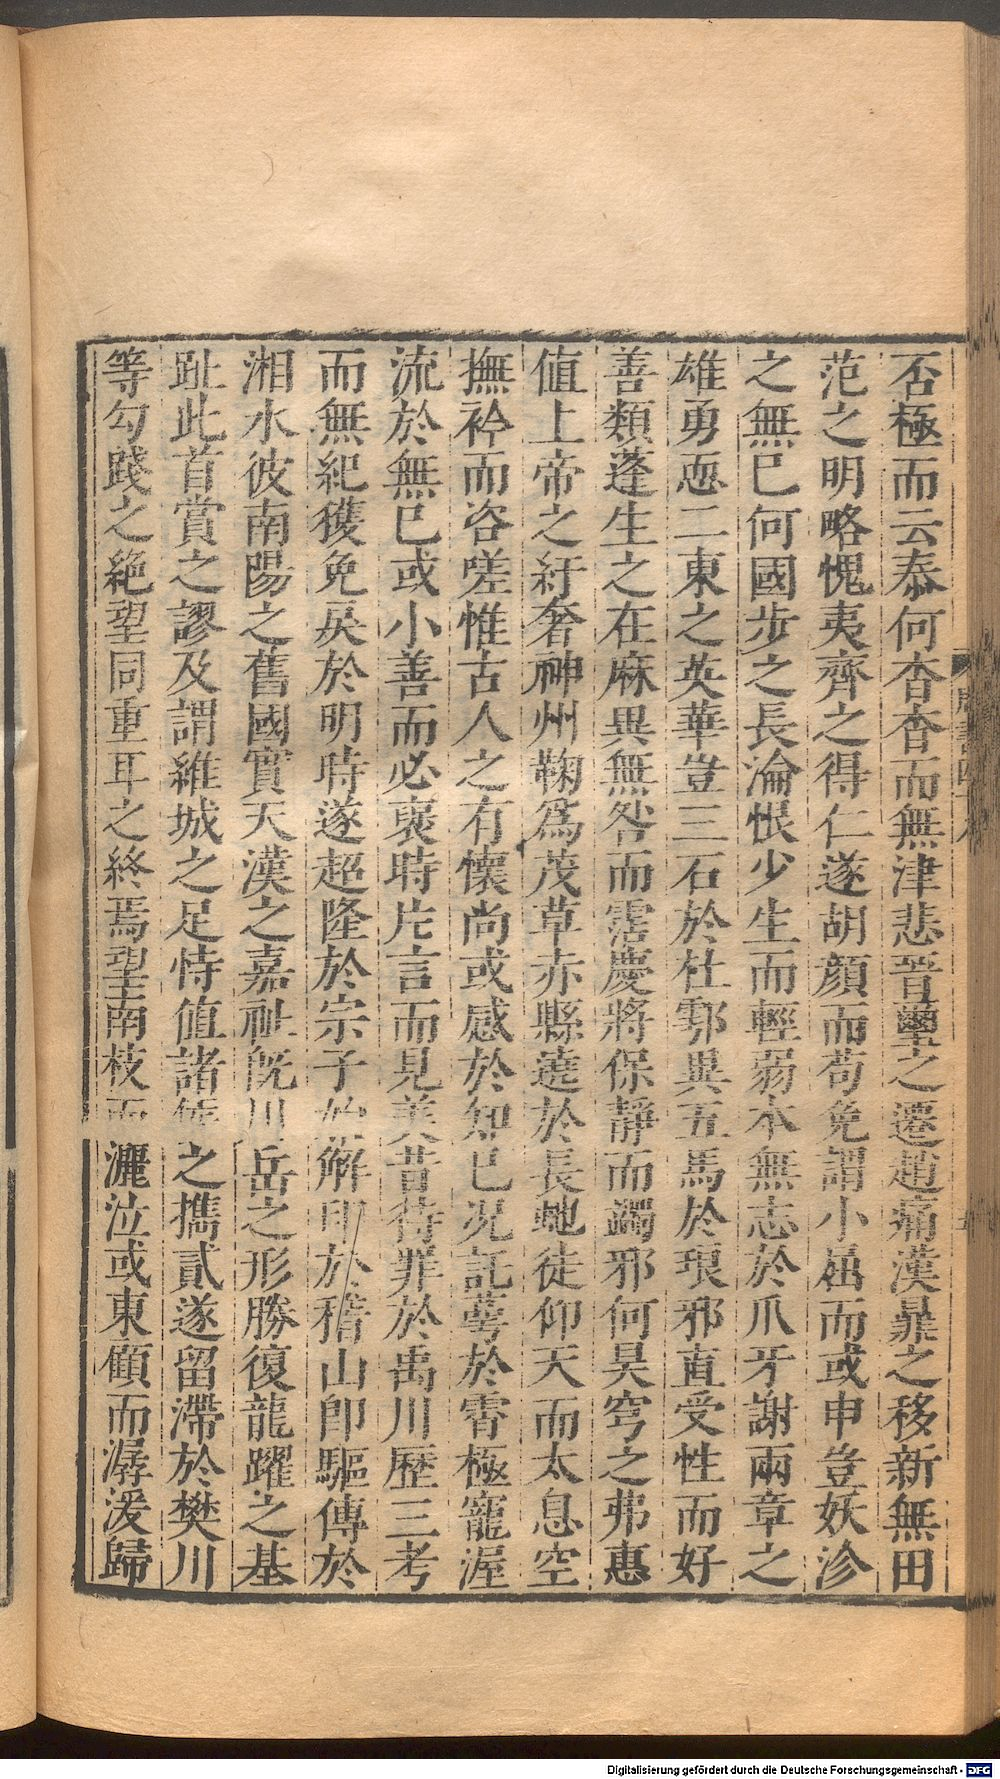 否極而云泰何杳杳而無津悲晉璽之遷趙痛漢暴之移新無田
范之明略愧夷齊之得仁遂胡顏而苟免謂小屈而或申豈妖沴
之無已何國步之長淪恨少生而輕弱本無志於爪牙謝兩章之
雄勇恧二東之英華豈三石於杜鄠異五馬於琅邪直受性而好
善類蓬生之在麻異無咎而霑慶將保靜而蠲邪何昊穹之弗惠
值上帝之紆奢神州鞠為茂草赤縣遶於長虵徒仰天而太息空
撫衿而咨嗟惟古人之有懷尚或感於知已况託蕚於霄極寵渥
流於無已或小善而必褒時片言而見美昔待罪於禹川歷三考
而無紀獲免戾於明時遂超隆於宗子始解印於稽山即驅傳於
湘水彼南陽之舊國實天漢之嘉祉旣川岳之形勝復龍躍之基
趾此首賞之謬及謂維城之足恃值諸侯之攜貳遂留滯於樊川
等勾踐之絕望同重耳之終焉望南枝而灑泣或東顧而潺湲歸
Digitalisierung gefördert durch die Deutsche Forschungsgemeinschaft - DFG